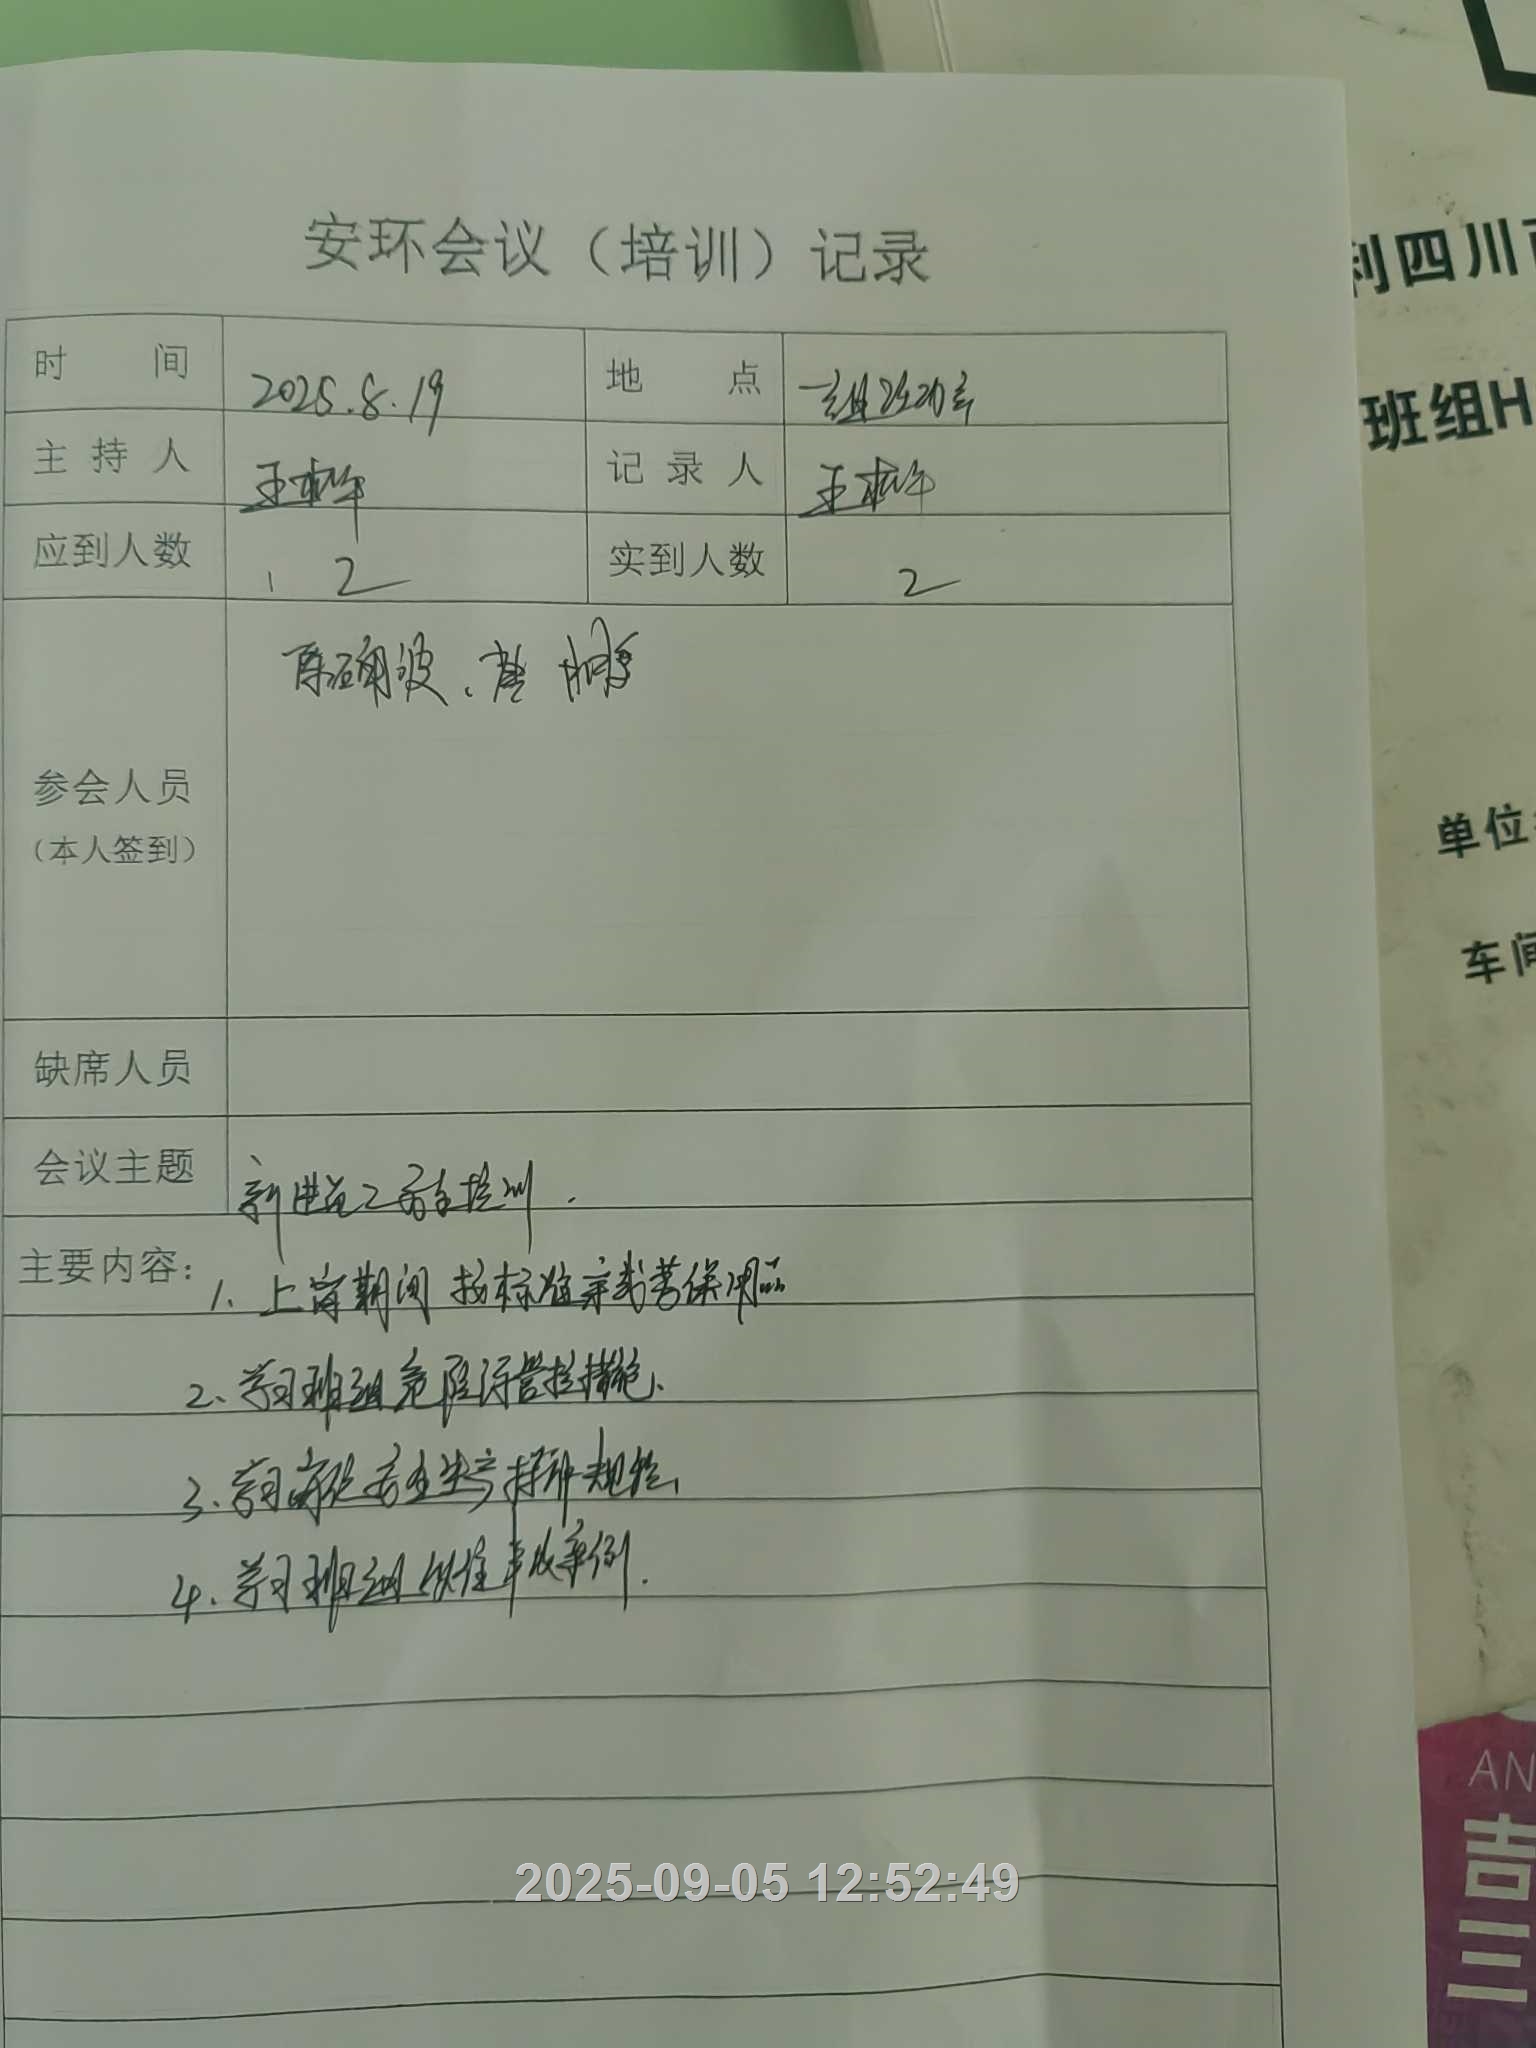 安环会议（培训）记录
时 间 2025.8.19 地 点
主 持 人 王 记 录 人 王
应到人数 2 实到人数 2
陈 波、
参会人员
（本人签到）
缺席人员
会议主题 新进员工安全培训.
主要内容: 1、上岗期间按标准穿戴劳保用品
2、学习班组危险源管控措施、
3、学习 安全生产操作规程、
4、学习班组 事故案例.
利四川
班组H
单位
车间
AN
吉
三
2025-09-05 12:52:49